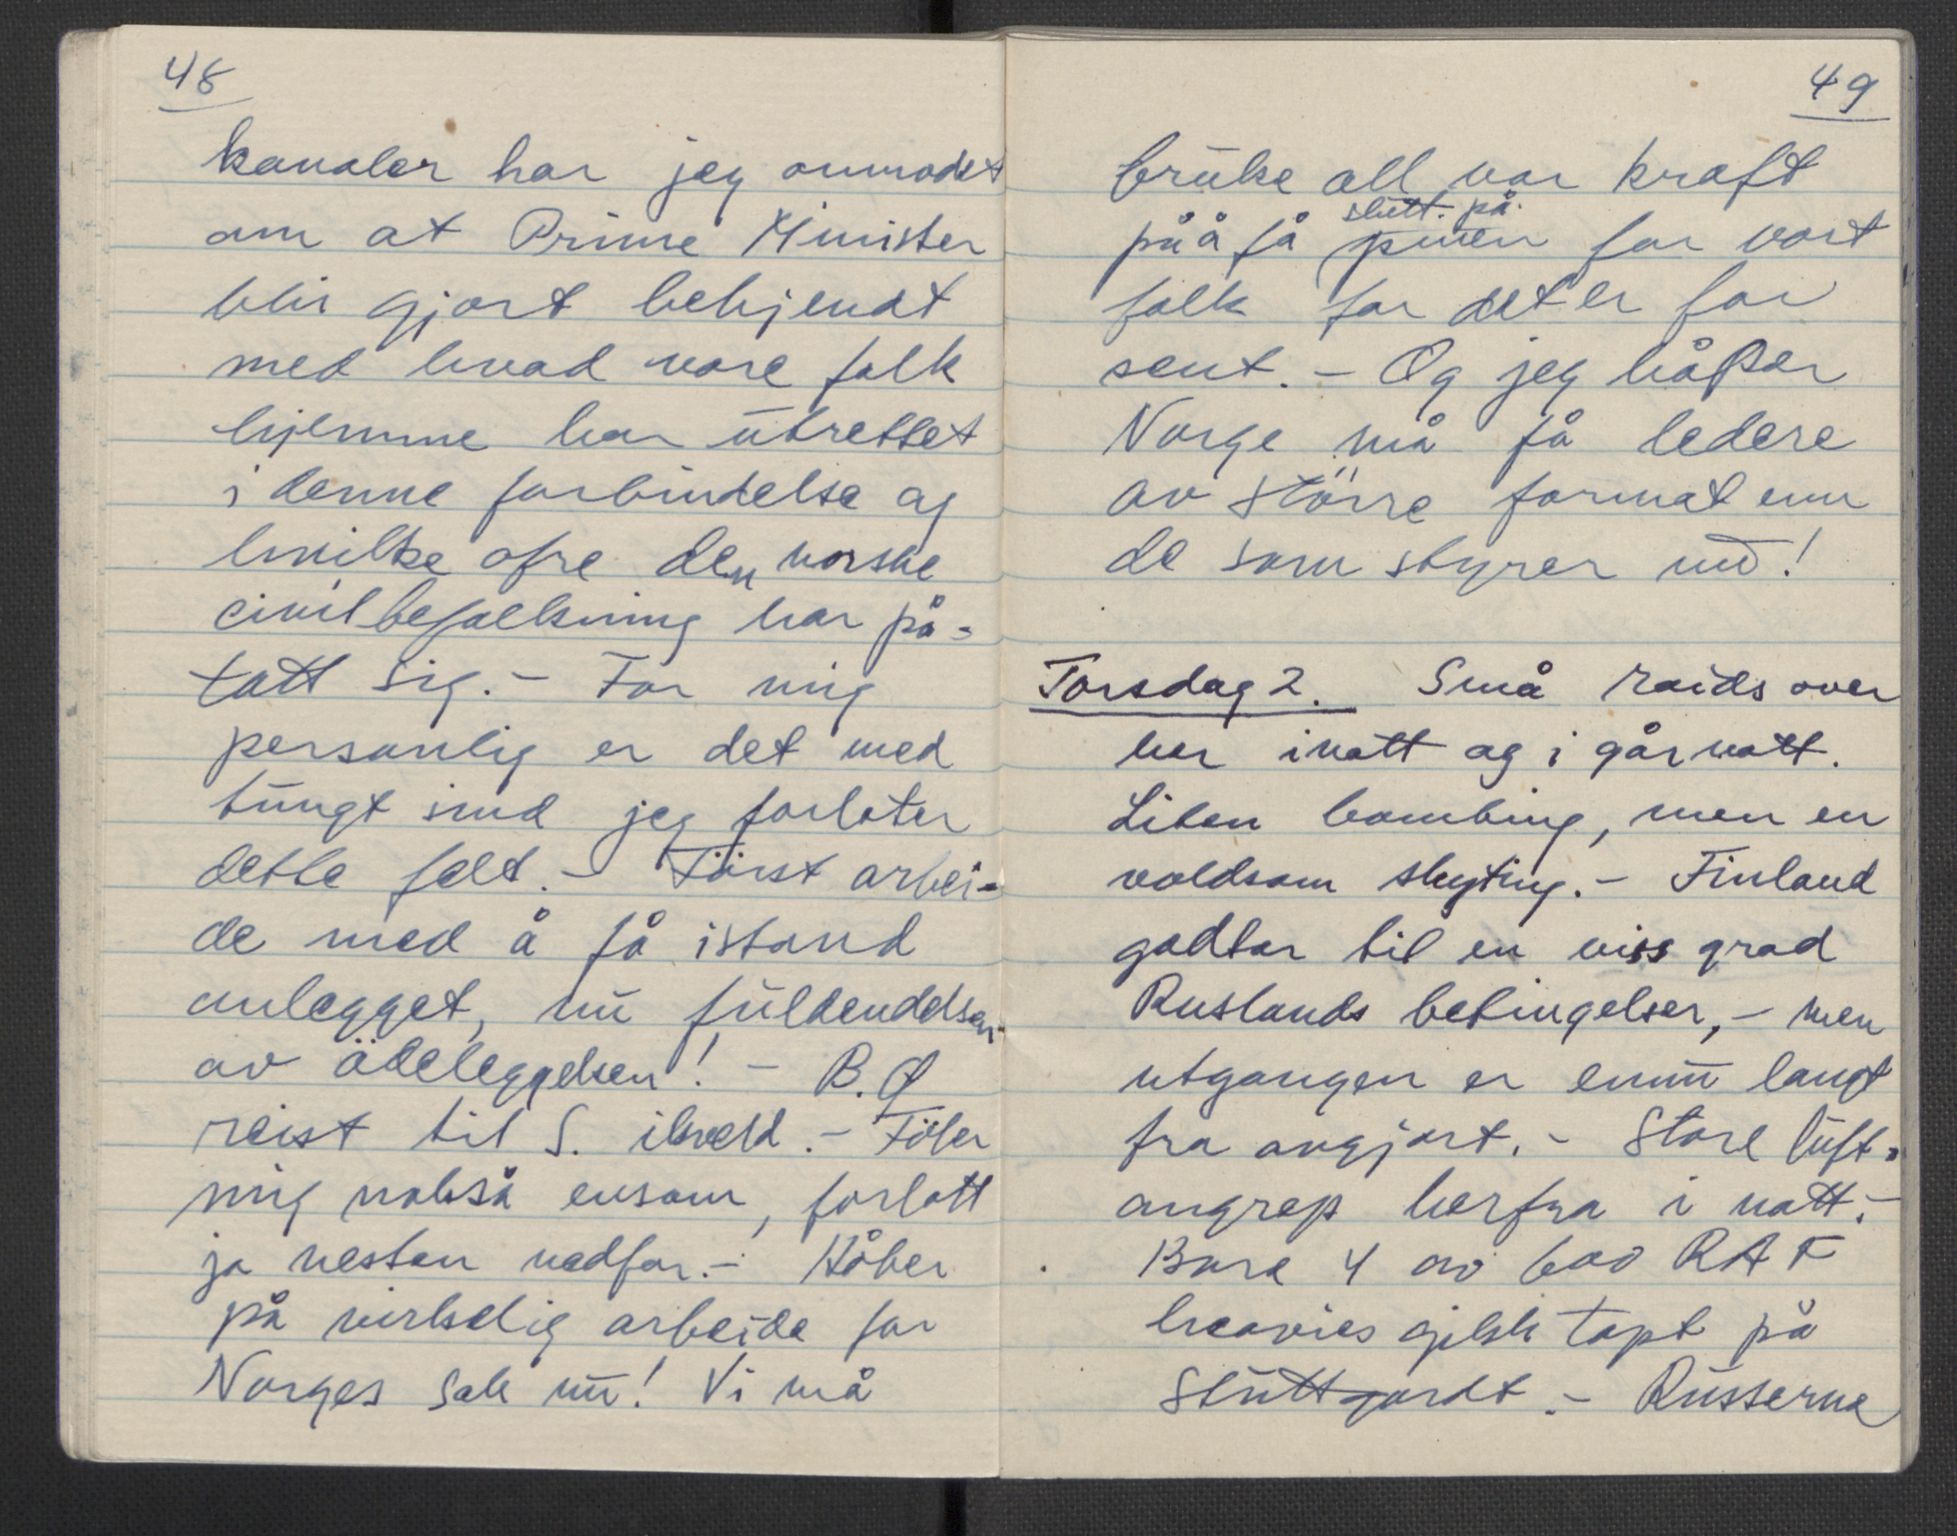 48
kanaler har jeg anmodet
om at Prime Minister
blir gjort bekjendt
med hvad vore folk
hjemme har utrettet
i denne forbindelse og
hvilke ofre den norske
civilbefolkning har på-
tatt sig. - For mig
personlig er det med
tungt sind jeg forlater
dette felt. - Först arbei-
de med å få istand
anlegget, nu fuldendelsen
av ödeleggelsen! - B.Ø
reist til S. ikveld. - Föler
mig nokså ensom, forlatt
ja nesten nedfor. - Håber
på virkelig arbeide for
Norges sak nu! Vi må
49
bruke all vor kraft
på å få slutt på pinen for vort
folk før det er for
sent. - Og jeg håper
Norge må få ledere
av större format enn
de som styrer nu!
Torsdag 2. Små raids over
her inatt og i går natt.
Liten bombing, men en
voldsom skyting. - Finland
godtar til en viss grad
Ruslands betingelser, - men
utgangen er ennu langt
fra avgjort. - Store luft-
angrep herfra i natt. -
Bare 4 av 600 RAF
heavies gikk tapt på
Stuttgardt. - Russerne